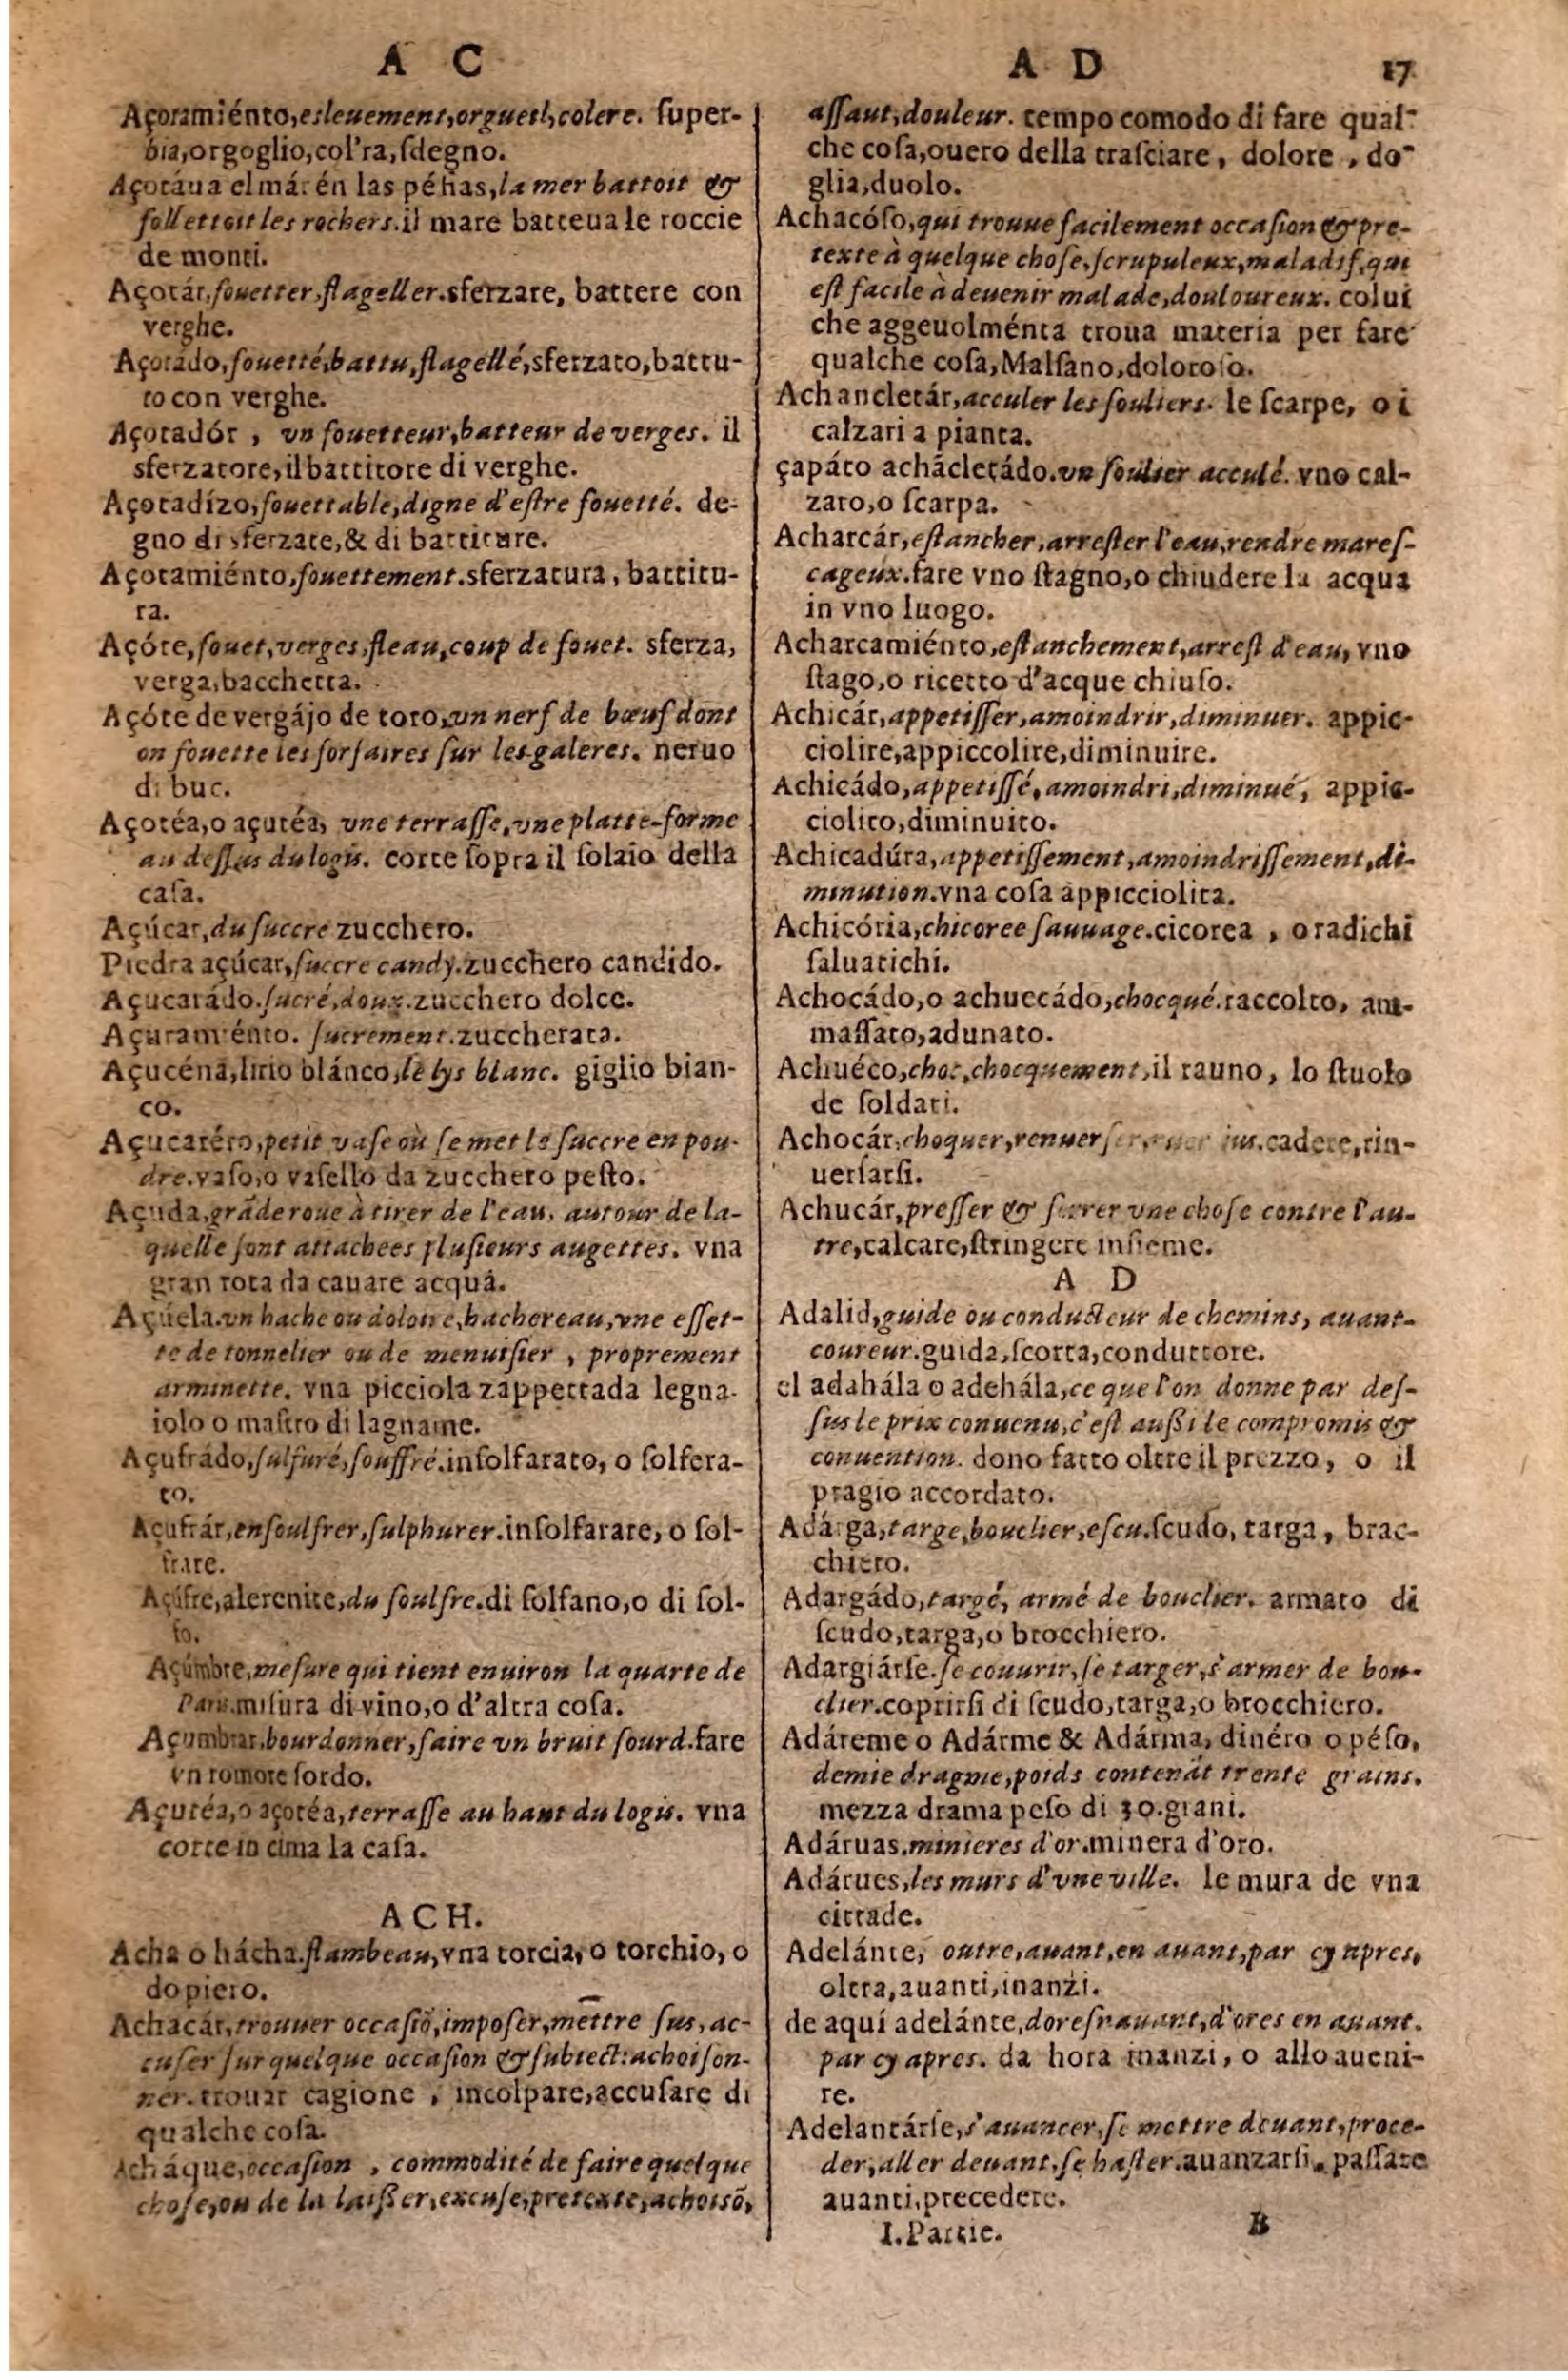 A C
Açoramiénto,esleuement,orgueil,colere. ſuper-
bia,orgoglio,col'ra,ſdegno.
Açotáua el már én las péñas,la mer battoit &
follettoit les rochers.il mare batteua le roccie
de monti.
Açotár,fouetter,flageller.sferzare, battere con
verghe.
Açotádo,fouetté,battu,flagellé,sferzato,battu-
to con verghe.
Açotadór , vn fouetteur,batteur de verges. il
sferzatore,il battitore di verghe.
Açotadízo,fouettable,digne d'eſtre fouetté. de-
gno di sferzate,& di battiture.
Açotamiénto,fouettement.sferzatura, battitu-
ra.
Açóte,fouet,verges,fleau,coup de fouet. sferza,
verga,bacchetta.
Açóte de vergájo de toro,vn nerf de bœuf dont
on fouette les forſaires ſur les galeres. neruo
di buc.
Açotéa,o açutéa, vne terraſſe,vne platte-forme
au deſſus du logis. corte ſopra il ſolaio della
caſa.
Açúcar,du ſuccre zucchero.
Piedra açúcar,ſuccre candy.zucchero candido.
Açucarádo.ſucré,doux.zucchero dolce.
Açuramiénto. ſucrement.zuccherata.
Açucéna,lirio blánco,le lys blanc. giglio bian-
co.
Açucaréro,petit vaſe où ſe met le ſuccre en pou-
dre.vaſo,o vaſello da zucchero peſto.
Açuda,grãde roue à tirer de l'eau, autour de la-
quelle ſont attachees pluſieurs augettes. vna
gran rota da cauare acquá.
Açúela.vn hache ou doloire,hachereau,vne eſſet-
te de tonnelier ou de menuiſier , proprement
arminette. vna picciola zappettada legna-
iolo o maſtro di lagname.
Açufrádo,ſulfuré,ſouffré.inſolfarato, o ſolfera-
to.
Açufrár,enſoulfrer,ſulphurer.inſolfarare, o ſol-
frare.
Açúfre,alerenite,du ſoulfre.di ſolfano,o di ſol-
fo.
Açúmbre,meſure qui tient enuiron la quarte de
Paris.miſura di vino,o d'altra coſa.
Açumbrar.bourdonner,faire vn bruit ſourd.fare
vn romore ſordo.
Açutéa,o açotéa,terraſſe au haut du logis. vna
corte in cima la caſa.
ACH.
Acha o hácha.flambeau,vna torcia, o torchio, o
dopiero.
Achacár,trouuer occaſiõ,impoſer,mettre ſus, ac-
cuſer ſur quelque occaſion & ſubiect:achoiſon-
ner. trouar cagione , incolpare,accuſare di
qualche coſa.
Acháque,occaſion , commodité de faire quelque
choſe,ou de la laiſſer,excuſe,pretexte,achoisõ,
A D 17
aſſaut,douleur. tempo comodo di fare qual-
che coſa,ouero della traſciare, dolore , do-
glia,duolo.
Achacóſo,qui trouue facilement occaſion & pre-
texte à quelque choſe,ſcrupuleux,maladif,qui
eſt facile à deuenir malade,douloureux. colui
che aggeuolménta troua materia per fare
qualche coſa,Malſano,doloroſo.
Achancletár,acculer les ſouliers. le ſcarpe, o i
calzari a pianta.
çapáto achãcletádo.vn ſoulier acculé. vno cal-
zato,o ſcarpa.
Acharcár,eſtancher,arreſter l'eau,rendre mareſ-
cageux.fare vno ſtagno,o chiudere la acqua
in vno luogo.
Acharcamiénto,eſtanchement,arreſt d'eau, vno
ſtago,o ricetto d'acque chiuſo.
Achicár,appetiſſer,amoindrir,diminuer. appic-
ciolire,appiccolire,diminuire.
Achicádo,appetiſſé,amoindri,diminué, appic-
ciolito,diminuito.
Achicadúra,appetiſſement,amoindriſſement,di-
minution.vna coſa appicciolita.
Achicória,chicoree ſauuage.cicorea , o radichi
ſaluatichi.
Achocádo,o achuecádo,chocqué.raccolto, am-
maſſato,adunato.
Achuéco,choc,chocquement,il rauno, lo ſtuolo
de ſoldati.
Achocár,choquer,renuerſer,ruer ius.cadere,rin-
uerſarſi.
Achucár,preſſer & ſerrer vne choſe contre l'au-
tre,calcare,ſtringere inſieme.
A D
Adalid,guide ou conducteur de chemins, auant-
coureur.guida,ſcorta,conduttore.
el adahála o adehála,ce que l'on donne par deſ-
ſus le prix conuenu,c'eſt auſſi le compromis &
conuention. dono fatto oltre il prezzo, o il
pragio accordato.
Adárga,targe,bouclier,eſcu.ſcudo, targa, brac-
chiero.
Adargádo,targé, armé de bouclier. armato di
ſcudo,targa,o brocchiero.
Adargiárſe.ſe couurir,ſe targer,s'armer de bou-
clier.coprirſi di ſcudo,targa,o brocchiero.
Adáreme o Adárme & Adárma, dinéro o péſo,
demie dragme,poids contenãt trente grains.
mezza drama peſo di 30.grani.
Adáruas.minieres d'or.minera d'oro.
Adárues,les murs d'vne ville. le mura de vna
cittade.
Adelánte, outre,auant,en auant,par cy apres,
oltra,auanti,inanzi.
de aquí adelánte,doreſnauant,d'ores en auant.
par cy apres. da hora inanzi, o allo aueni-
re.
Adelantárſe,s'auancer,ſe mettre deuant,proce-
der,aller deuant,ſe haſter.auanzarſi, paſſare
auanti,precedere.
I.Partie. B